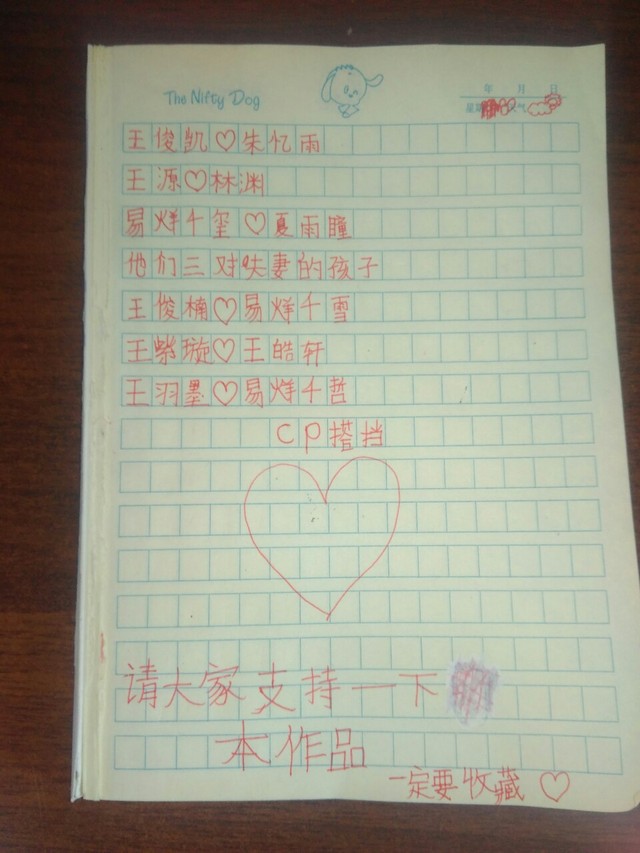 The Nifty Dog
年 月 日
王俊凯♡朱忆雨
王源♡林渊
易烊千玺♡夏雨瞳
他们三对夫妻的孩子
王俊楠♡易烊千雪
王紫璇♡王皓轩
王羽墨♡易烊千哲
cp搭挡
请大家支持一下
本作品
一定要收藏♡